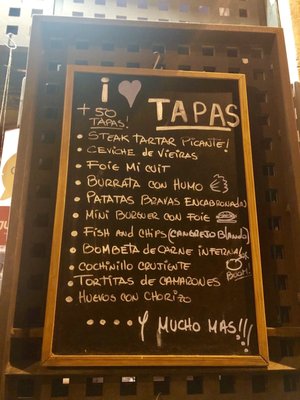 I ♥ TAPAS
+50
TAPAS!
• STEAK TARTAR PICANTE!
• CEVICHE DE VIEIRAS
• FOIE MI CUIT
• BURRATA CON HUMO
• PATATAS BRAVAS ENCABRONADAS
• MINI BURGUER CON FOIE
• FISH AND CHIPS (CANGREJO BLANDO)
• BOMBETA DE CARNE INFERNAL
BOOM!
• COCHINILLO CRUJIENTE
• TORTITAS DE CAMARONES
• HUEVOS CON CHORIZO
..... Y MUCHO MAS!!!